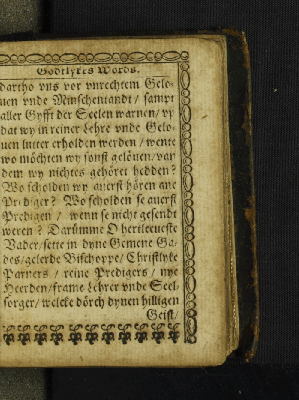 Godtlykes Words.
dartho vns vor vnrechtem Gelo-
uen vnde Minschentandt / sampt
aller Gyfft der Seelen warnen / vp
dat wy in reiner Lehre vnde Gelo-
uen luter erholden werden / wente
wo möchten wy sonst gelöuen / van
dem wy nichtes gehöret hedden?
Wo scholden wy auerst hören ane
Prediger? Wo scholden se auerst
Predigen / wenn se nicht gesendt
weren? Darümme O herteleueste
Vader / sette in dyne Gemene Ga-
des / gelerde Bischoppe / Christlyke
Parners / reine Predigers / nye
Heerden / frame Lehrer vnde Seel-
sorger / welcke dörch dynen hilligen
Geist /